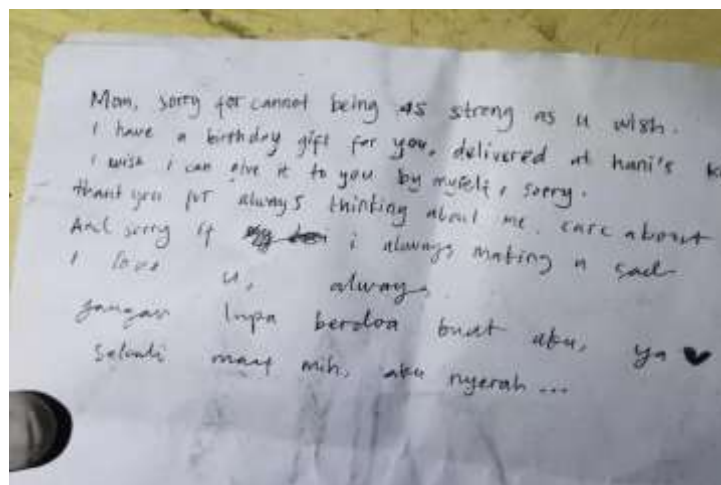 Mom, sorry for cannot being as strong as u wish.
I have a birthday gift for you, delivered at hani's
I wish I can give it to you by myself, sorry.
thank you for always thinking about me, care about
And sorry if i always making u sad
I love u, always.
jangan lupa berdoa buat aku, ya ♥
Sekali maaf mih, aku nyerah ...